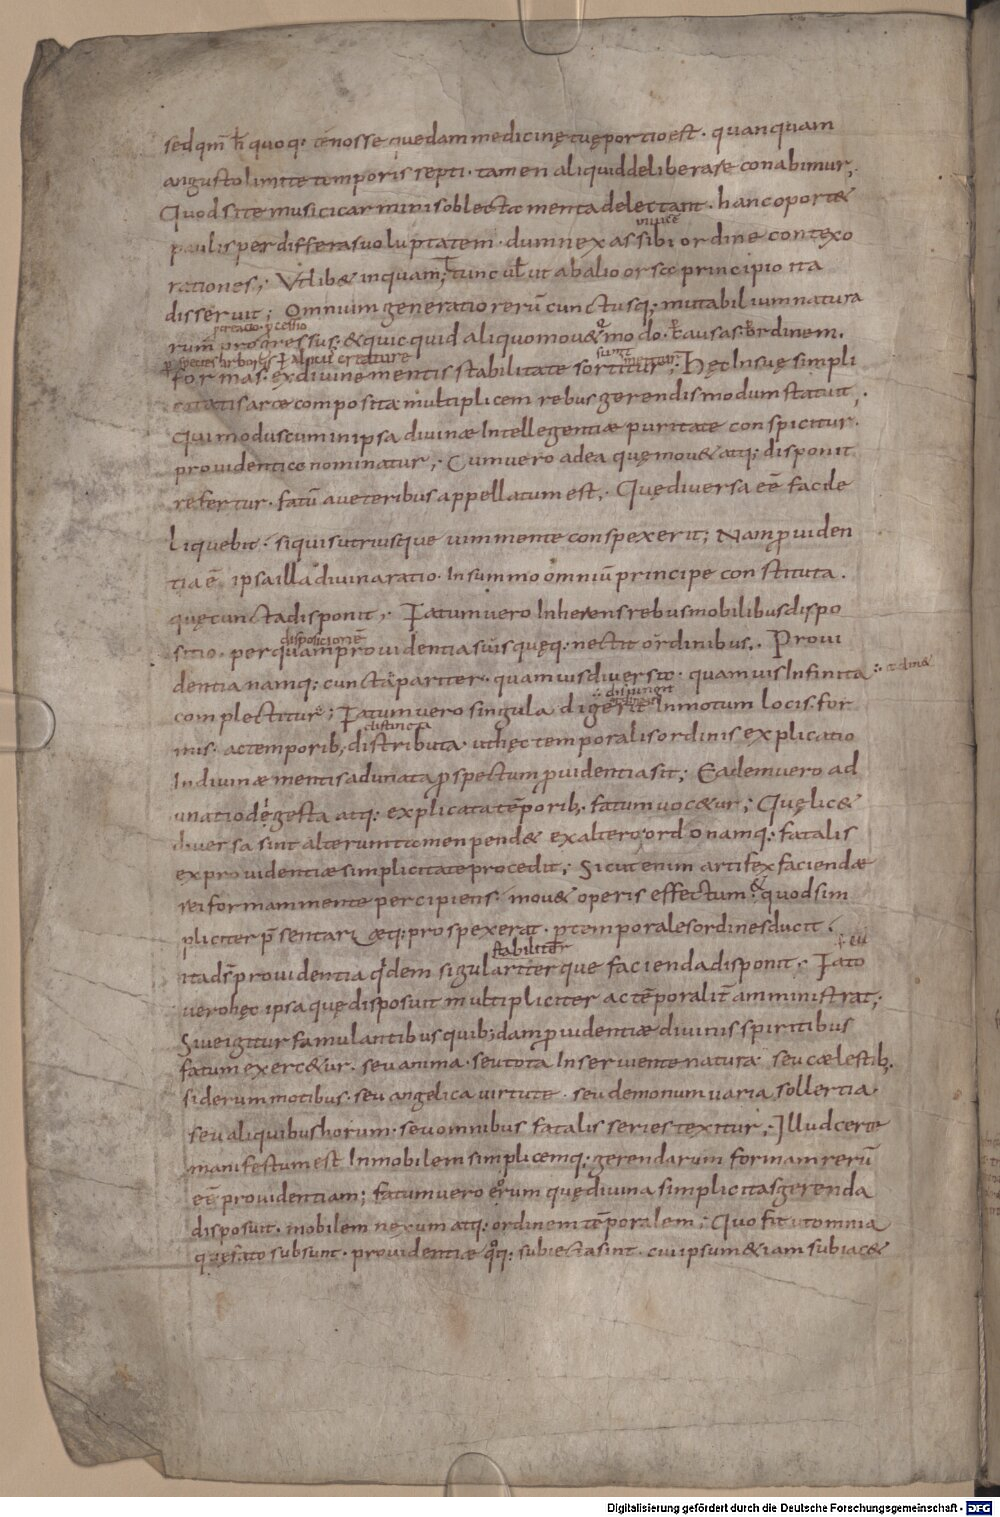 sed qm̄ h̄ quoq; te nosse quędam medicinę tuę portio est · quanquam
angusto limite temporis septi · tamen aliquid deliberare conabimur;
Quod si te musici carminis oblectamenta delectant · hanc oport&
paulisper differas uoluptatem · dum nexas sibi ordine contexo
rationes; Vt lib& inquam; tunc uel ut ab alio orsa principio ita
disseruit; Omnium generatio rerū cunctusq; mutabilium natura
pcessio
rum progressus · & quicquid aliquo mou& modo · causas · ordinem ·
creature
formas · ex diuinę mentis stabilitate sortitur; Hęc In suę simpli
citatis arce composita multiplicem rebus gerendis modum statuit;
Qui modus cum in ipsa diuinæ Intellegentiæ puritate conspicitur ·
prouidentia nominatur; Cum uero ad ea quę mou& atq; disponit
refertur · fatū a ueteribus appellatum est; Quę diuersa eē̄ facile
liquebit · si quis utriusque uim mente conspexerit; Nam ꝓuiden
tia ē ipsa illa diuina ratio · In summo omniū principe constituta ·
quę cuncta disponit; Fatum uero Inherens rebus mobilibus dispo
dispositionē
sitio · per quam prouidentia suis quęq; nectit ordinibus; Proui
dentia namq; cuncta pariter · quamuis diuersa · quamuis Infinita
disiungit
complectitur; Fatum uero singula digerit In motum locis · for
distincta
mis · ac temporib; distributa · ut hęc temporalis ordinis explicatio
In diuinæ mentis adunata ꝓspectum ꝓuidentia sit; Eadem uero ad
unatio digesta atq; explicata tēporib; · fatum uoc&ur; Quę lic&
diuersa sint alterum tamen pend& ex altero; ordo namq; fatalis
ex prouidentiæ simplicitate procedit; Sicut enim artifex faciendæ
rei formam mente percipiens · mou& operis effectum · & quod sim
pliciter p̄sentariæq; prospexerat · p temporales ordines ducit ·
stabiliter
ita ds̄ prouidentia qdem singulariter que facienda disponit · Fato
uero hęc ipsa quę disposuit multipliciter ac tēporalit̄ amministrat;
Siue igitur famulantibus quib;dam ꝓuidentiæ diuinis spiritibus
fatum exerc&ur · seu anima · seu tota Inseruiente natura seu cælestib;
siderum motibus · seu angelica uirtute · seu demonum uaria sollertia ·
seu aliquibus horum · seu omnibus fatalis series texitur; Illud certe
manifestum est Inmobilem simplicemq; gerendarum formam rerū
eē̄ prouidentiam; fatum uero eorum quę diuina simplicitas gerenda
disposuit · mobilem nexum atq; ordinem tēporalem; Quo fit ut omnia
quę fato subsunt · prouidentiæ qoq; subiecta sint · cui ipsum &iam subiac&
Digitalisierung gefördert durch die Deutsche Forschungsgemeinschaft - DFG